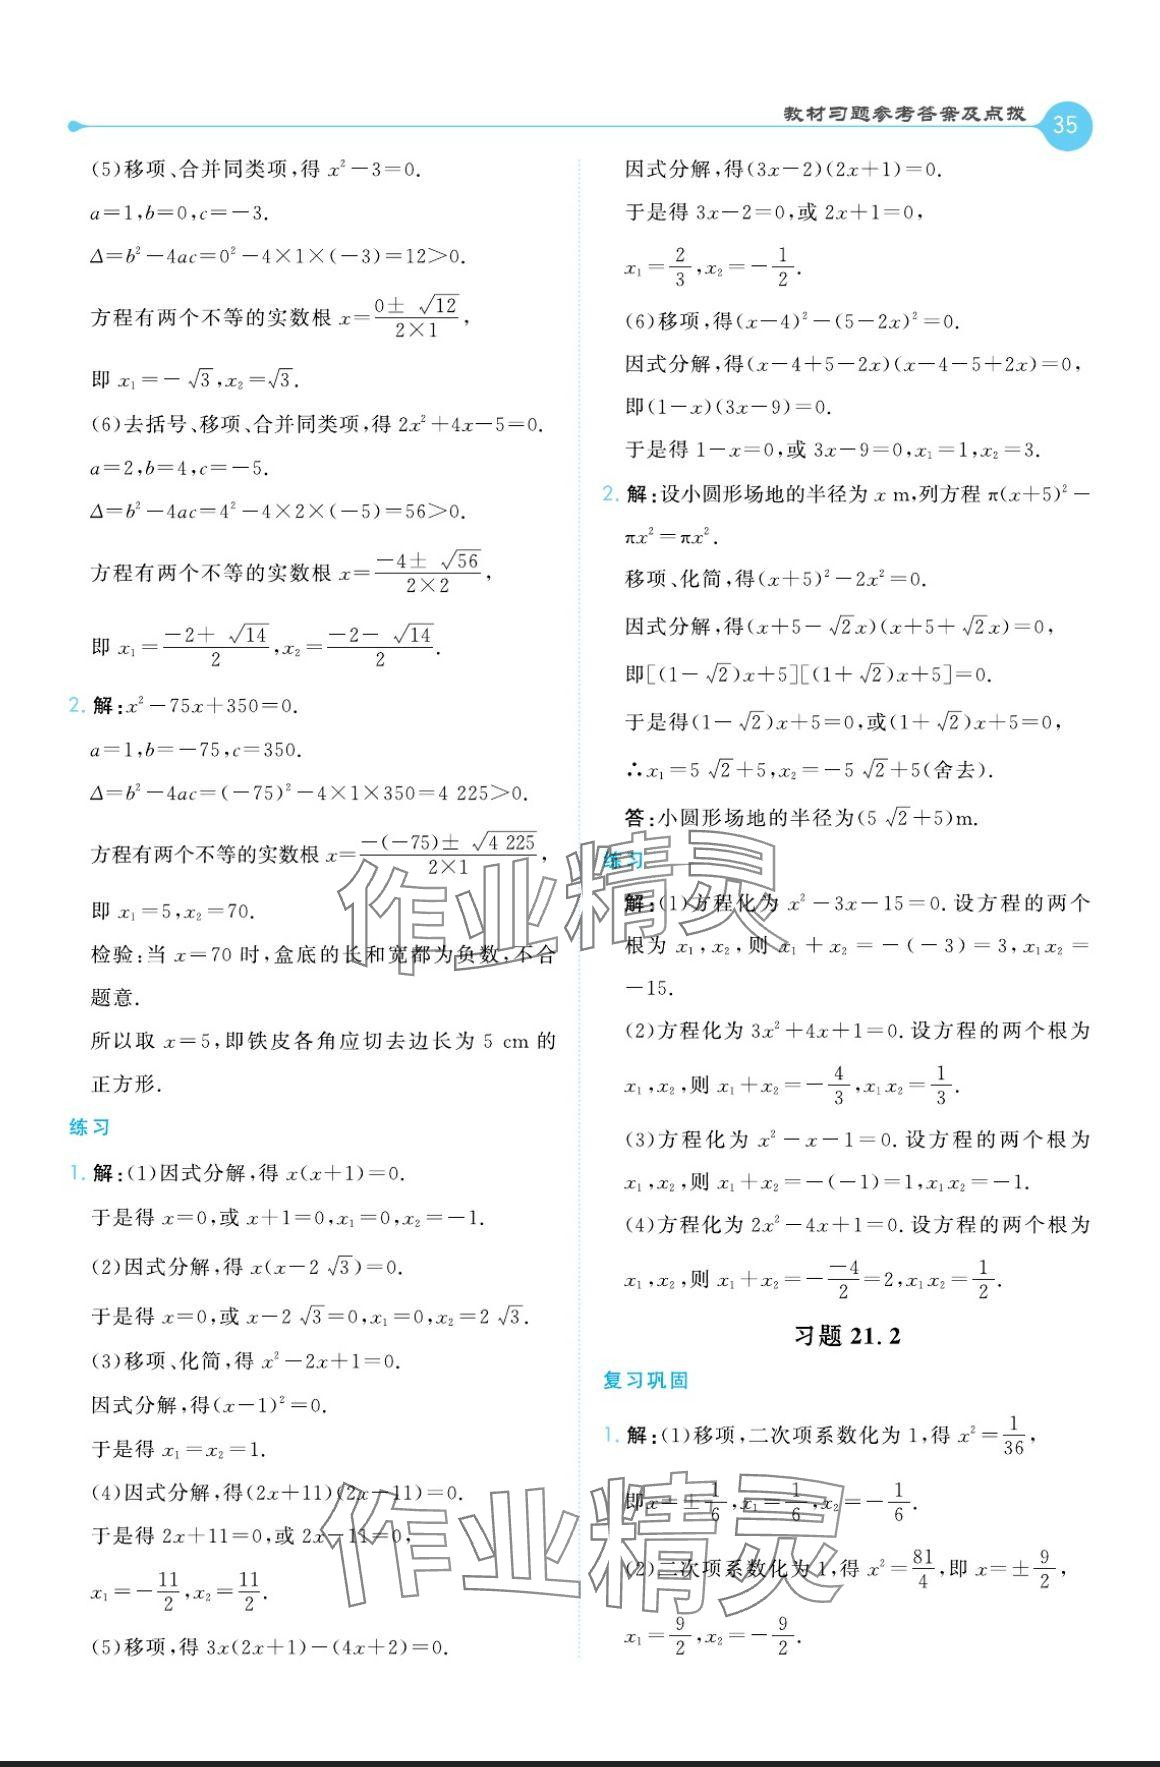 教材习题参考答案及点拨 35
(5)移项、合并同类项,得 x²-3=0.
a=1,b=0,c=-3.
Δ=b²-4ac=0²-4×1×(-3)=12>0.
方程有两个不等的实数根 x=\frac{0±\sqrt{12}}{2×1},
即 x₁=-√3,x₂=√3.
(6)去括号、移项、合并同类项,得 2x²+4x-5=0.
a=2,b=4,c=-5.
Δ=b²-4ac=4²-4×2×(-5)=56>0.
方程有两个不等的实数根 x=\frac{-4±\sqrt{56}}{2×2},
即 x₁=\frac{-2+\sqrt{14}}{2},x₂=\frac{-2-\sqrt{14}}{2}.
2. 解:x²-75x+350=0.
a=1,b=-75,c=350.
Δ=b²-4ac=(-75)²-4×1×350=4 225>0.
方程有两个不等的实数根 x=\frac{-(-75)±\sqrt{4 225}}{2×1},
即 x₁=5,x₂=70.
检验:当 x=70 时,盒底的长和宽都为负数,不合
题意.
所以取 x=5,即铁皮各角应切去边长为 5 cm 的
正方形.
练习
1. 解:(1)因式分解,得 x(x+1)=0.
于是得 x=0,或 x+1=0,x₁=0,x₂=-1.
(2)因式分解,得 x(x-2√3)=0.
于是得 x=0,或 x-2√3=0,x₁=0,x₂=2√3.
(3)移项、化简,得 x²-2x+1=0.
因式分解,得(x-1)²=0.
于是得 x₁=x₂=1.
(4)因式分解,得(2x+11)(2x-11)=0.
于是得 2x+11=0,或 2x-11=0,
x₁=-\frac{11}{2},x₂=\frac{11}{2}.
(5)移项,得 3x(2x+1)-(4x+2)=0.
因式分解,得(3x-2)(2x+1)=0.
于是得 3x-2=0,或 2x+1=0,
x₁=\frac{2}{3},x₂=-\frac{1}{2}.
(6)移项,得(x-4)²-(5-2x)²=0.
因式分解,得(x-4+5-2x)(x-4-5+2x)=0,
即(1-x)(3x-9)=0.
于是得 1-x=0,或 3x-9=0,x₁=1,x₂=3.
2. 解:设小圆形场地的半径为 x m,列方程 π(x+5)²-
πx²=πx².
移项、化简,得(x+5)²-2x²=0.
因式分解,得(x+5-√2x)(x+5+√2x)=0,
即[(1-√2)x+5][(1+√2)x+5]=0.
于是得(1-√2)x+5=0,或(1+√2)x+5=0,
∴x₁=5√2+5,x₂=-5√2+5(舍去).
答:小圆形场地的半径为(5√2+5)m.
练习
解:(1)方程化为 x²-3x-15=0. 设方程的两个
根为 x₁,x₂,则 x₁+x₂=-(-3)=3,x₁x₂=
-15.
(2)方程化为 3x²+4x+1=0. 设方程的两个根为
x₁,x₂,则 x₁+x₂=-\frac{4}{3},x₁x₂=\frac{1}{3}.
(3)方程化为 x²-x-1=0. 设方程的两个根为
x₁,x₂,则 x₁+x₂=-(-1)=1,x₁x₂=-1.
(4)方程化为 2x²-4x+1=0. 设方程的两个根为
x₁,x₂,则 x₁+x₂=-\frac{-4}{2}=2,x₁x₂=\frac{1}{2}.
习题 21.2
复习巩固
1. 解:(1)移项,二次项系数化为 1,得 x²=\frac{1}{36},
即x=±\frac{1}{6},x₁=\frac{1}{6},x₂=-\frac{1}{6}.
(2)二次项系数化为 1,得 x²=\frac{81}{4},即 x=±\frac{9}{2},
x₁=\frac{9}{2},x₂=-\frac{9}{2}.
作业精灵
作业精灵